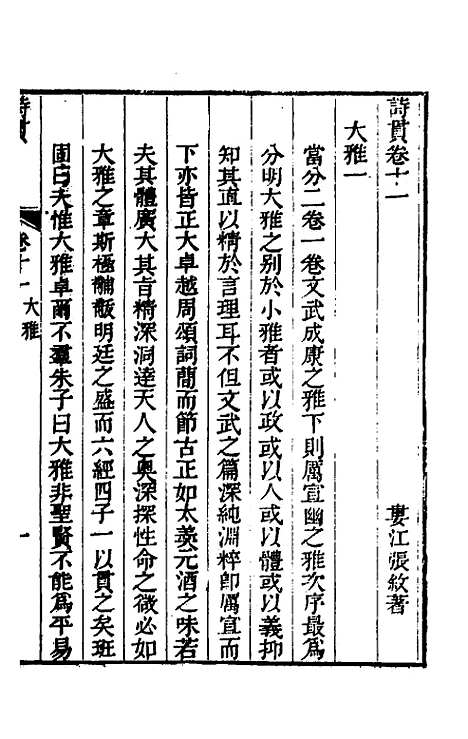 詩貫卷十一
婁江張敘著
大雅一
當分二卷一卷文武成康之雅下則厲宣幽之雅次序最爲
分明大雅之別於小雅者或以政或以人或以體或以義抑
知其直以精於言理耳不但文武之篇深純淵粹卽厲宣而
下亦皆正大卓越周頌詞簡而節古正如太羹元酒之味若
夫其體廣大其旨精深洞達天人之奧深探性命之微必如
大雅之章斯極黼黻明廷之盛而六經四子一以貫之矣班
固曰夫惟大雅卓爾不羣朱子曰大雅非聖賢不能爲平易
詩貫
卷十一
大雅
一